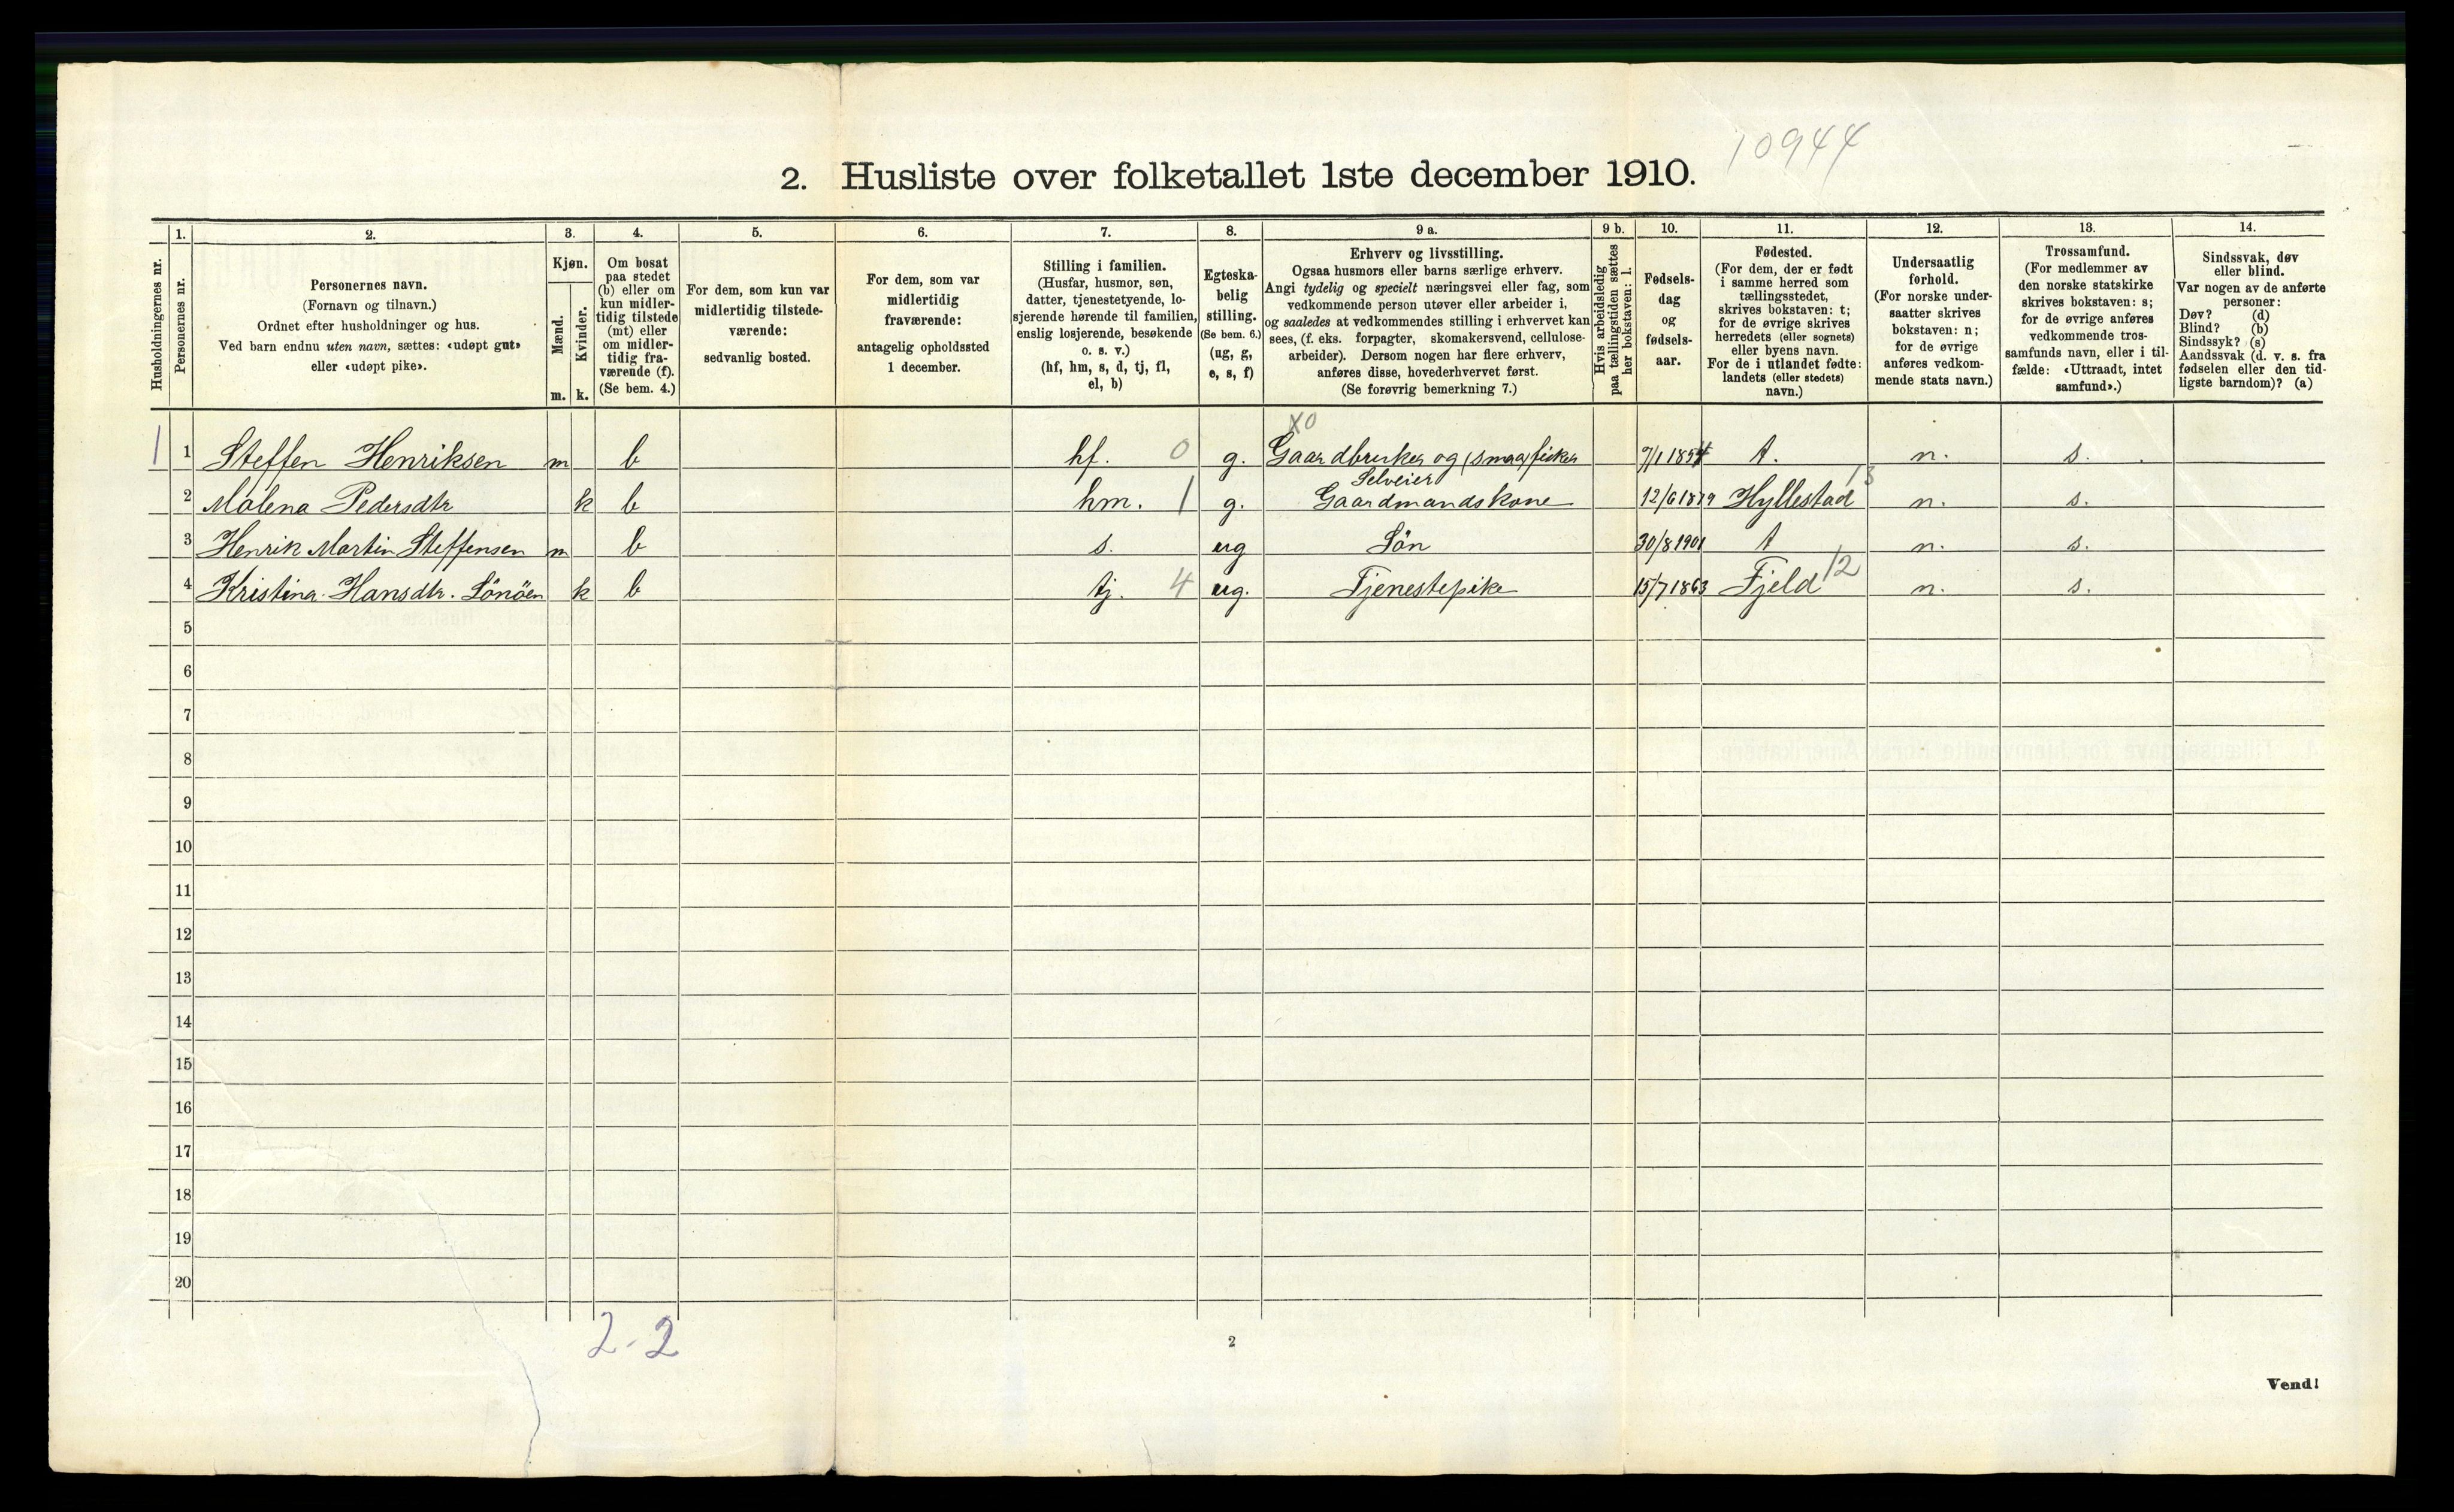 10944
2. Husliste over folketallet 1ste december 1910.
Husholdningernes nr.
1.
Personernes nr.
2.
Personernes navn.
(Fornavn og tilnavn.)
Ordnet efter husholdninger og hus.
Ved barn endnu uten navn, sættes: «udøpt gut»
eller «udøpt pike».
3.
Kjøn.
Mænd.
Kvinder.
m. k.
4.
Om bosat
paa stedet
(b) eller om
kun midler-
tidig tilstede
(mt) eller
om midler-
tidig fra-
værende (f).
(Se bem. 4.)
5.
For dem, som kun var
midlertidig tilstede-
værende:
sedvanlig bosted.
6.
For dem, som var
midlertidig
fraværende:
antagelig opholdssted
1 december.
7.
Stilling i familien.
(Husfar, husmor, søn,
datter, tjenestetyende, lo-
sjerende hørende til familien,
enslig losjerende, besøkende
o. s. v.)
(hf, hm, s, d, tj, fl,
el, b)
8.
Egteska-
belig
stilling.
(Se bem. 6.)
(ug, g,
e, s, f)
9 a.
Erhverv og livsstilling.
Ogsaa husmors eller barns særlige erhverv.
Angi tydelig og specielt næringsvei eller fag, som
vedkommende person utøver eller arbeider i,
og saaledes at vedkommendes stilling i erhvervet kan
sees, (f. eks. forpagter, skomakersvend, cellulose-
arbeider). Dersom nogen har flere erhverv,
anføres disse, hovederhvervet først.
(Se forøvrig bemerkning 7.)
9 b.
Hvis arbeidsledig
paa tællingstiden sættes
her bokstaven: l.
10.
Fødsels-
dag
og
fødsels-
aar.
11.
Fødested.
(For dem, der er født
i samme herred som
tællingsstedet,
skrives bokstaven: t;
for de øvrige skrives
herredets (eller sognets)
eller byens navn.
For de i utlandet fødte:
landets (eller stedets)
navn.)
12.
Undersaatlig
forhold.
(For norske under-
saatter skrives
bokstaven: n;
for de øvrige
anføres vedkom-
mende stats navn.)
13.
Trossamfund.
(For medlemmer av
den norske statskirke
skrives bokstaven: s;
for de øvrige anføres
vedkommende tros-
samfunds navn, eller i til-
fælde: «Uttraadt, intet
samfund».)
14.
Sindssvak, døv
eller blind.
Var nogen av de anførte
personer:
Døv? (d)
Blind? (b)
Sindssyk? (s)
Aandssvak (d. v. s. fra
fødselen eller den tid-
ligste barndom)? (a)
X0
1 1 Steffen Henriksen m b hf. 0 g. Gaardbruker og (smaa)fisker 7/1 1854 t. n. s.
Selveier
2 Malena Pedersdtr k b hm. 1 g. Gaardmandskone 12/6 1879 Hyllestad 13 n. s.
3 Henrik Martin Steffensen m b s. ug Sön 30/8 1901 t n. s.
4 Kristina Hansdtr. Sönöen k b tj. 4 ug. Tjenestepike 15/7 1863 Fjeld 12 n. s.
5
6
7
8
9
10
11
12
13
14
15
16
17
18
19
20
2-2
2
Vend!